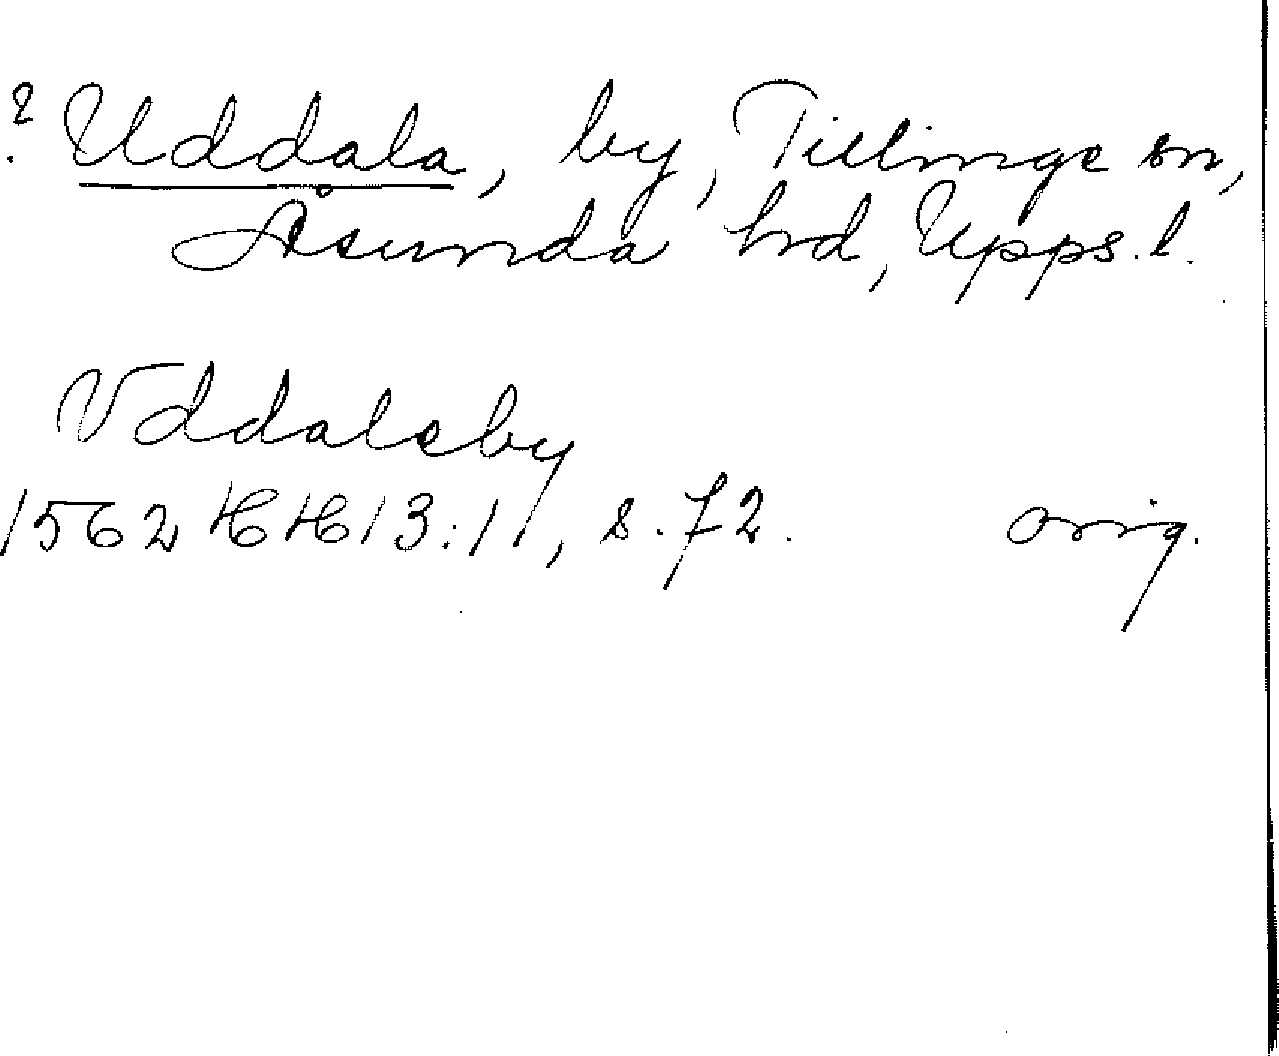 ? Uddala, by, Tillinge sn,
Åsunda hrd, Upps. l.
Vddaleby
1562 HH 13:11, s. 72. orig.